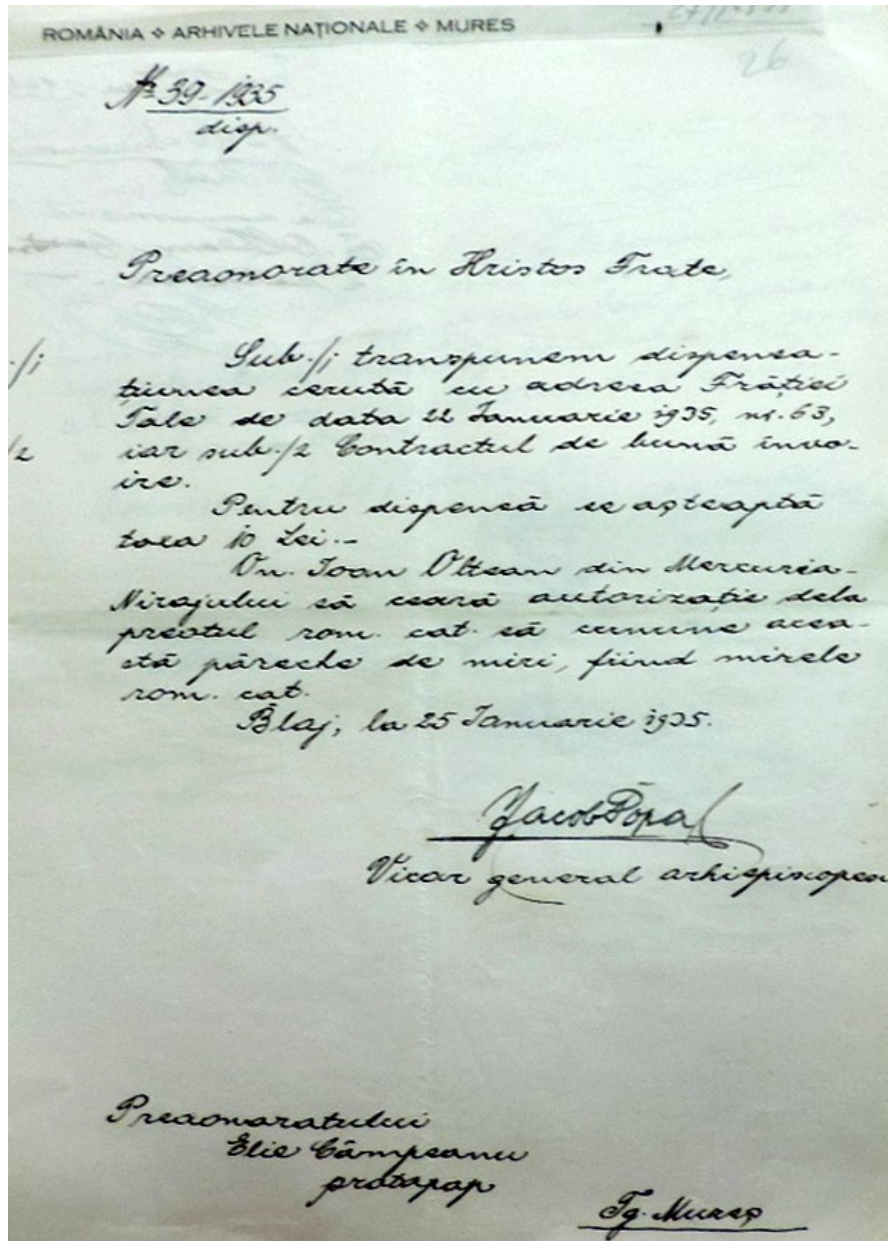 ROMÂNIA ❖ ARHIVELE NAȚIONALE ❖ MURES
26
№ 39-1935
disp.
Preaonorate în Hristos Frate,
./i
Sub ./i transpunem dispensa-
țiunea cerută cu adresa Frăției
Tale de data 22 Ianuarie 1935, nr. 63,
./2
iar sub ./2 Contractul de bună învo-
ire.
Pentru dispensă se așteaptă
taxa 10 Lei.-
On. Ioan Oltean din Mercurea-
Nirajului să ceară autorizație dela
preotul rom. cat. să cunune acea-
stă păreche de miri, fiind mirele
rom. cat.
Blaj, la 25 Ianuarie 1935.
Jacob Popa
Vicar general arhiepiscopesc
Preaonoratului
Elie Câmpeanu
protopop
Tg. Mureș